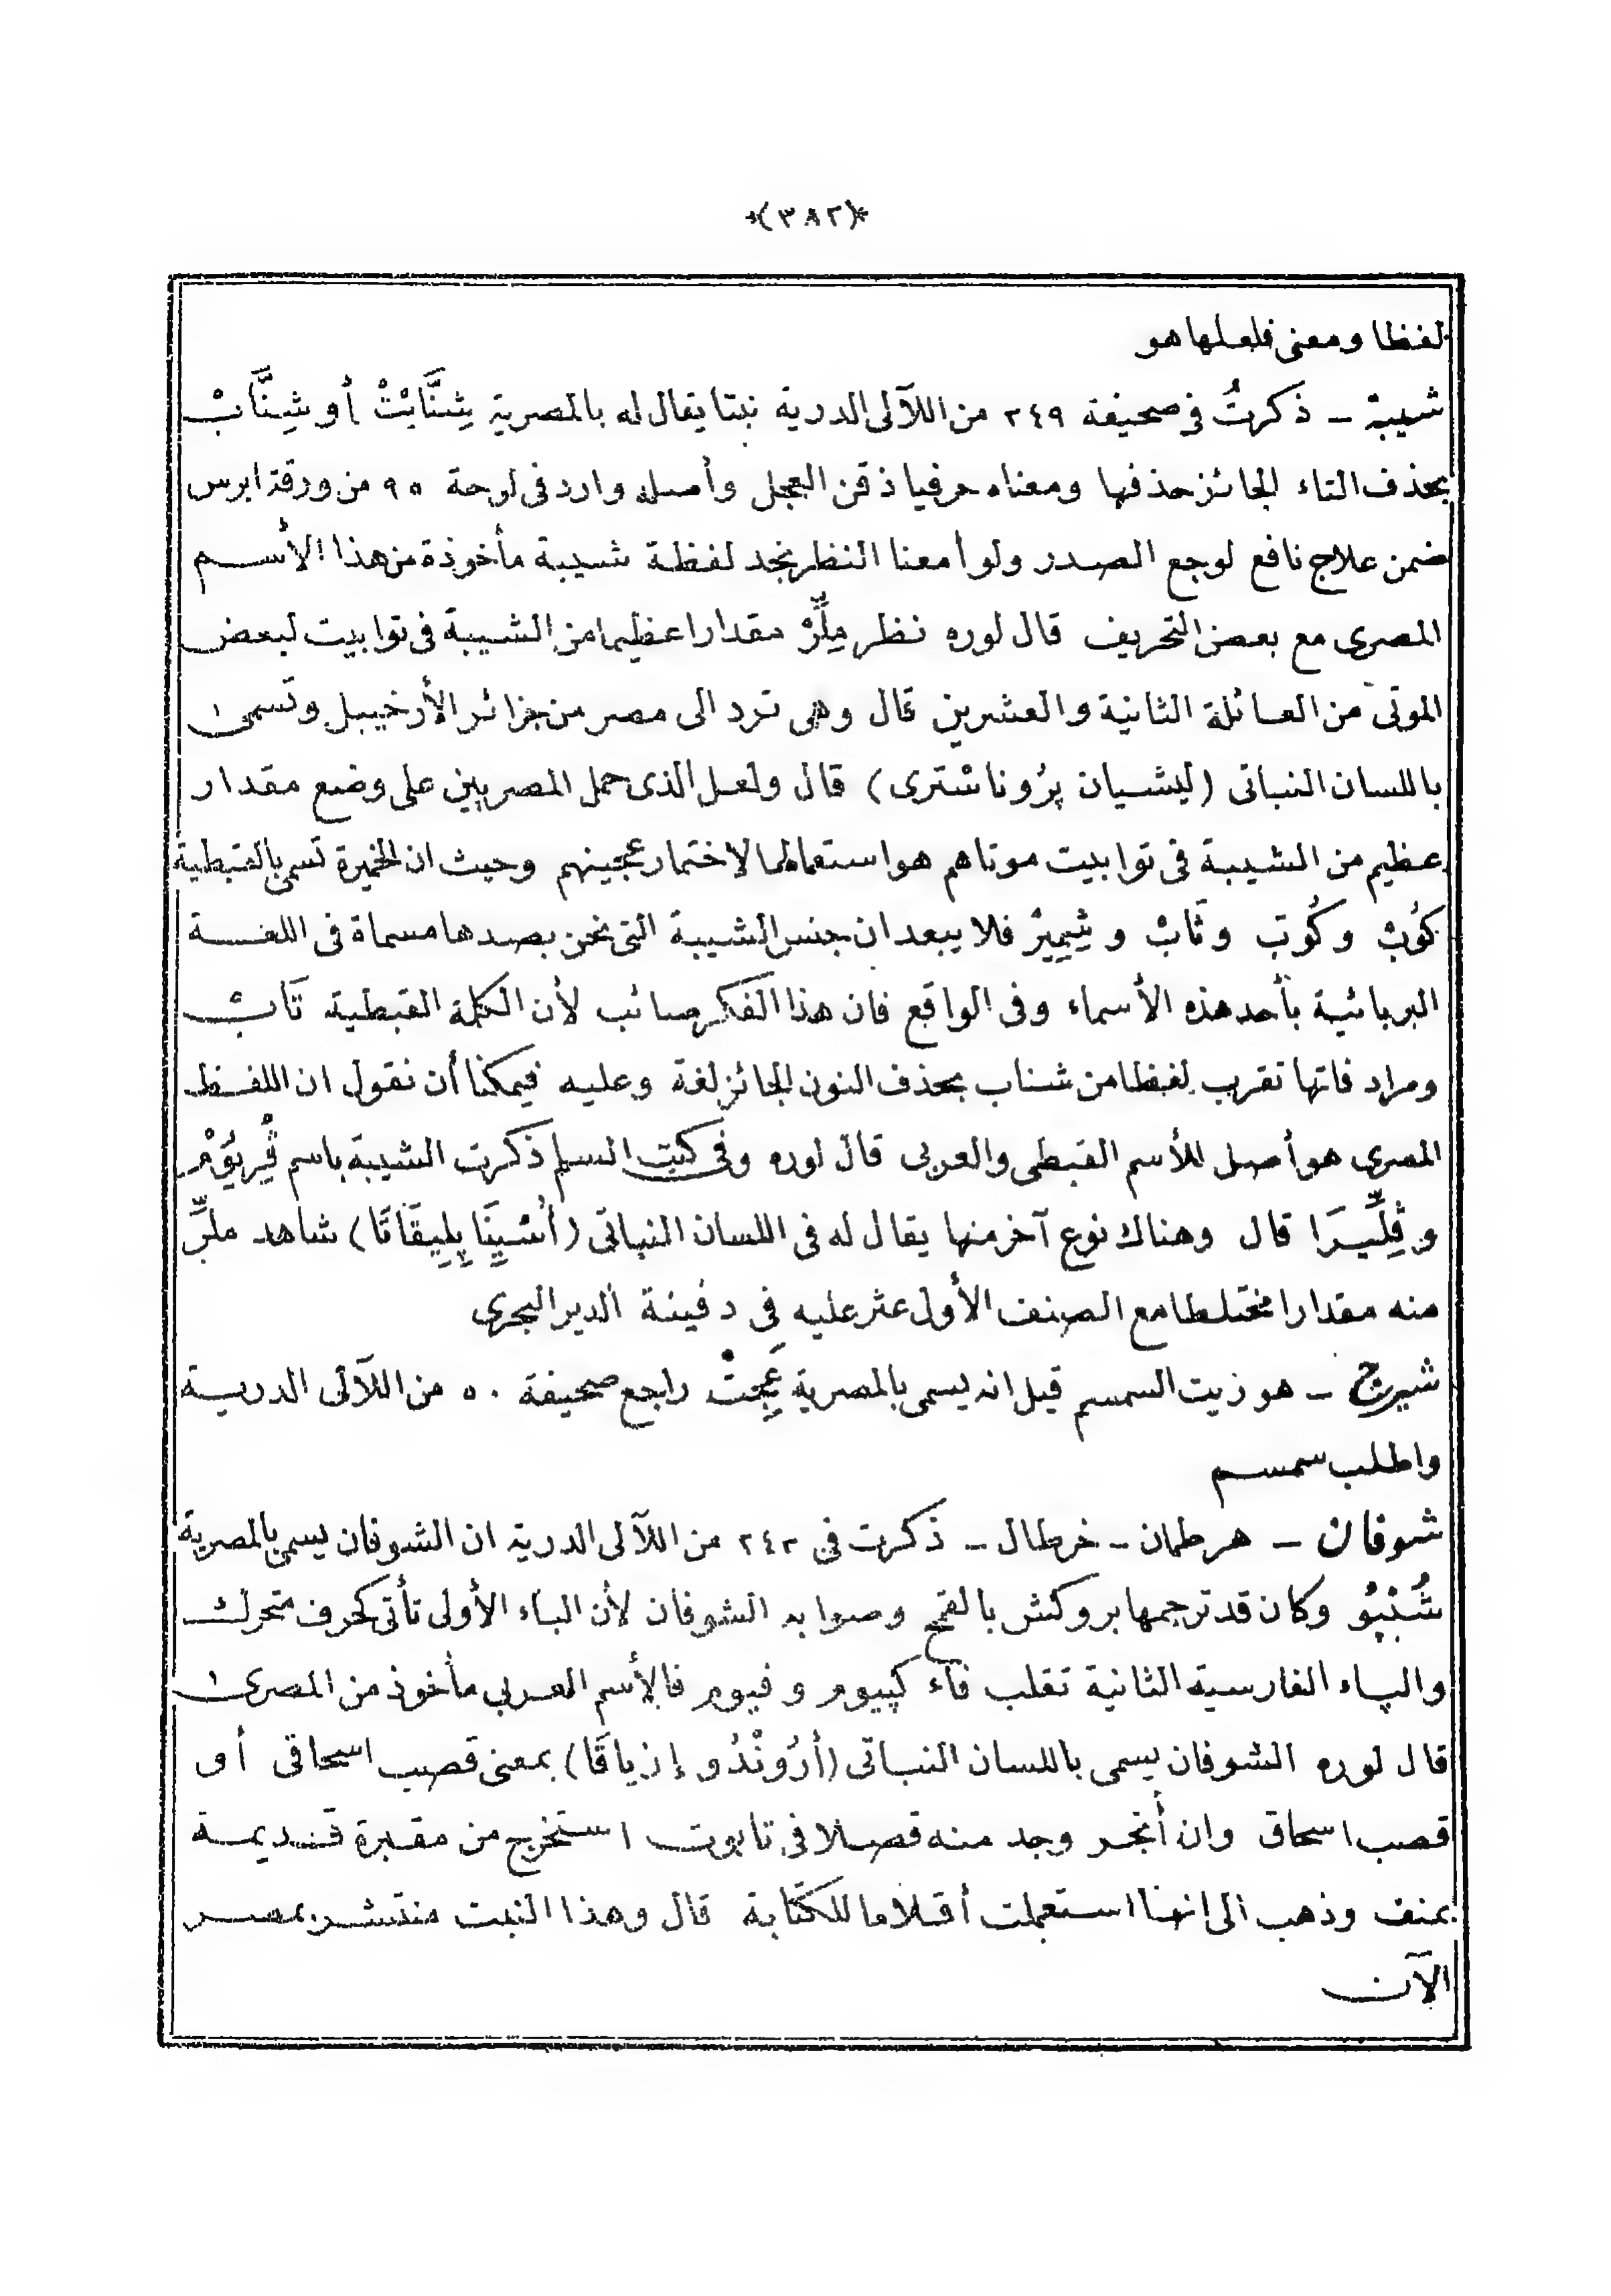 *(٣٨٢)*
لفظا ومعنى فلعلها هو
شيبة – ذكرتُ فى صحيفة ٢٤٩ من اللآلى الدرية نبتا يقال له بالمصرية شِنَّابْتْ أو شِنَّابْ
بحذف التاء الجائز حذفها ومعناه حرفيا ذقن العجل وأصله وارد فى لوحة ٩٥ من ورقة ابرس
ضمن علاج نافع لوجع الصدر ولو أمعنا النظر نجد لفظة شيبة مأخوذة من هذا الأسم
المصرى مع بعض التحريف قال لوره نظر مِلِّرْ مقدارا عظيما من الشيبة فى توابيت لبعض
الموتى من العائلة الثانية والعشرين قال وهى ترد الى مصر من جزائر الأرخيبل وتسمى
باللسان النباتى (ليشيان پرُوناسْترى) قال ولعل الذى حمل المصريين على وضع مقدار
عظيم من الشيبة فى توابيت موتاهم هو استعمالها لاختمار عجينهم وحيث ان الخميرة تسمى بالقبطية
كُوبْ وكُوتِ وثَابْ و ثِيمِيرْ فلا يبعد ان جنس الشيبة التى نحن بصددها مسماة فى اللغة
البربائية بأحد هذه الأسماء وفى الواقع فان هذا الفكر صائب لأن الكلمة القبطية ثَابْ
ومراد فاتها تقرب لفظا من شناب بحذف النون الجائز لغة وعليه فيمكنا أن نقول ان اللفظ
المصرى هو أصل للأسم القبطى والعربى قال لوره وفى كتب السلم ذكرت الشيبة باسم ڤْرِيُوَمْ
و ڤِلِّيرَا قال وهناك نوع آخر منها يقال له فى اللسان النباتى (أُسْنِيَا پِلِيقَاتَا) شاهد ملرِّ
منه مقدارا مختلطا مع الصنف الأول عثر عليه فى دفينة الدير البحرى
شيرج – هو زيت السمسم قيل انه يسمى بالمصرية عَجِتْ راجع صحيفة ٥٠ من اللآلى الدرية
واطلب سمسم
شوفان – هرطمان – خرطال – ذكرت فى ٢٤٣ من اللآلى الدرية ان الشوفان يسمى بالمصرية
شُنْپُو وكان قد ترجمها بروكش بالقمح وصوابه الشوفان لأن الباء الأولى تأتى كحرف متحرك
والپاء الفارسية الثانية تقلب فاء كپيوم وفيوم فالأسم العربى مأخوذ من المصرى
قال لوره الشوفان يسمى باللسان النباتى (أرُونْدُو إزياقَا) بمعنى قصب اسحاقى أو
قصب اسحاق وان أنجر وجد منه قصلا فى تابوت استخرج من مقبرة قديمة
بمنف وذهب الى انها استعملت أقلاما للكتابة قال وهذا النبت منتشر بمصر
الآن